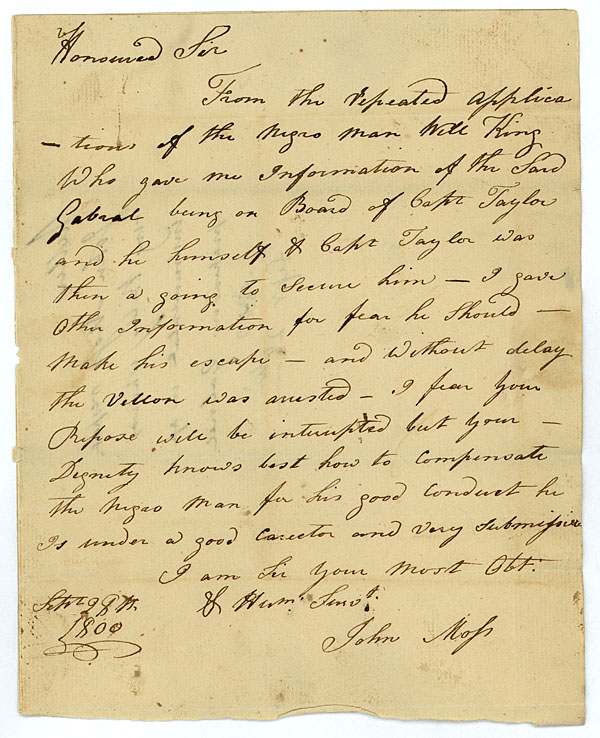 Honoured Sir
From the repeated applica
-tions of the Negro man Will King
Who gave me Information of the Said
Gabral being on Board of Capt Taylor
and he himself & Capt Taylor was
then a going to Secure him – I gave
Other Information for fear he Should –
Make his escape – and without delay
the Vellon was arested – I fear your
Repose will be interupted but your –
Dignety knows best how to Compensate
the Negro Man for his good Conduct he
Is under a good Carector and very submissive
I am Sir your most Obt.
& Hum. Servt.
Septr 28th
1800
John Moss